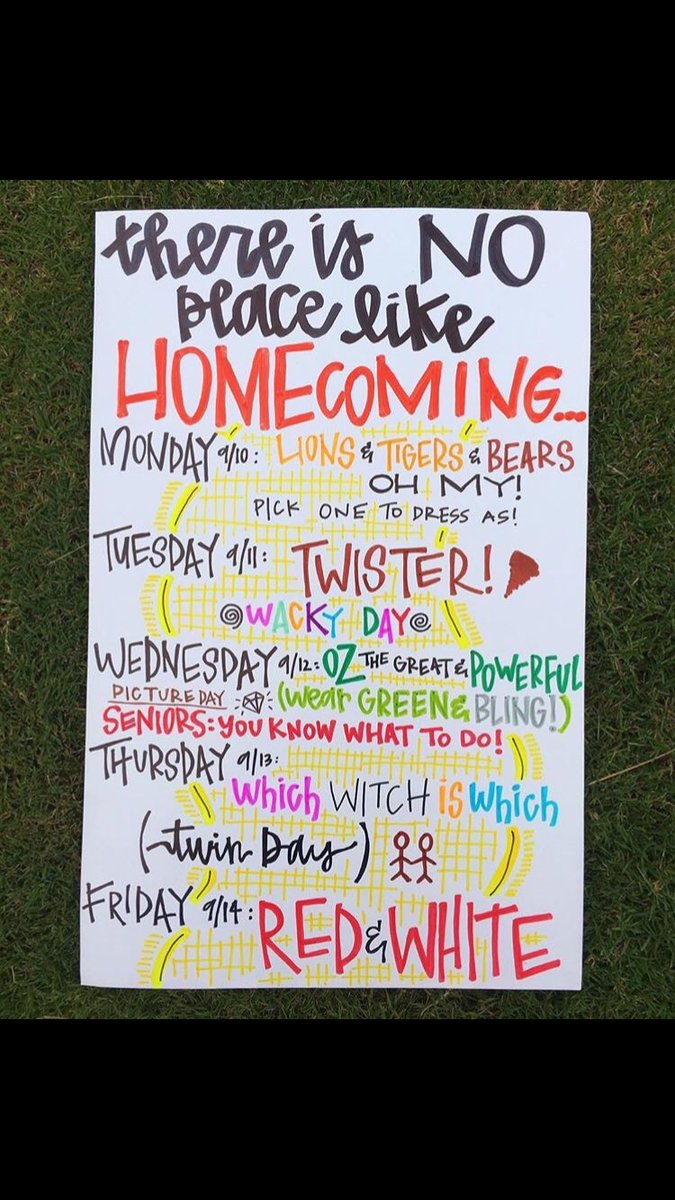 there is NO
place like
HOMECOMING...
MONDAY 9/10: LIONS & TIGERS & BEARS
OH MY!
PICK ONE TO DRESS AS!
TUESDAY 9/11: TWISTER!
WACKY DAY
WEDNESDAY 9/12: OZ THE GREAT & POWERFUL
PICTURE DAY (wear GREEN & BLING!)
SENIORS: YOU KNOW WHAT TO DO!
THURSDAY 9/13:
which WITCH is which
(twin Day)
FRIDAY 9/14: RED & WHITE